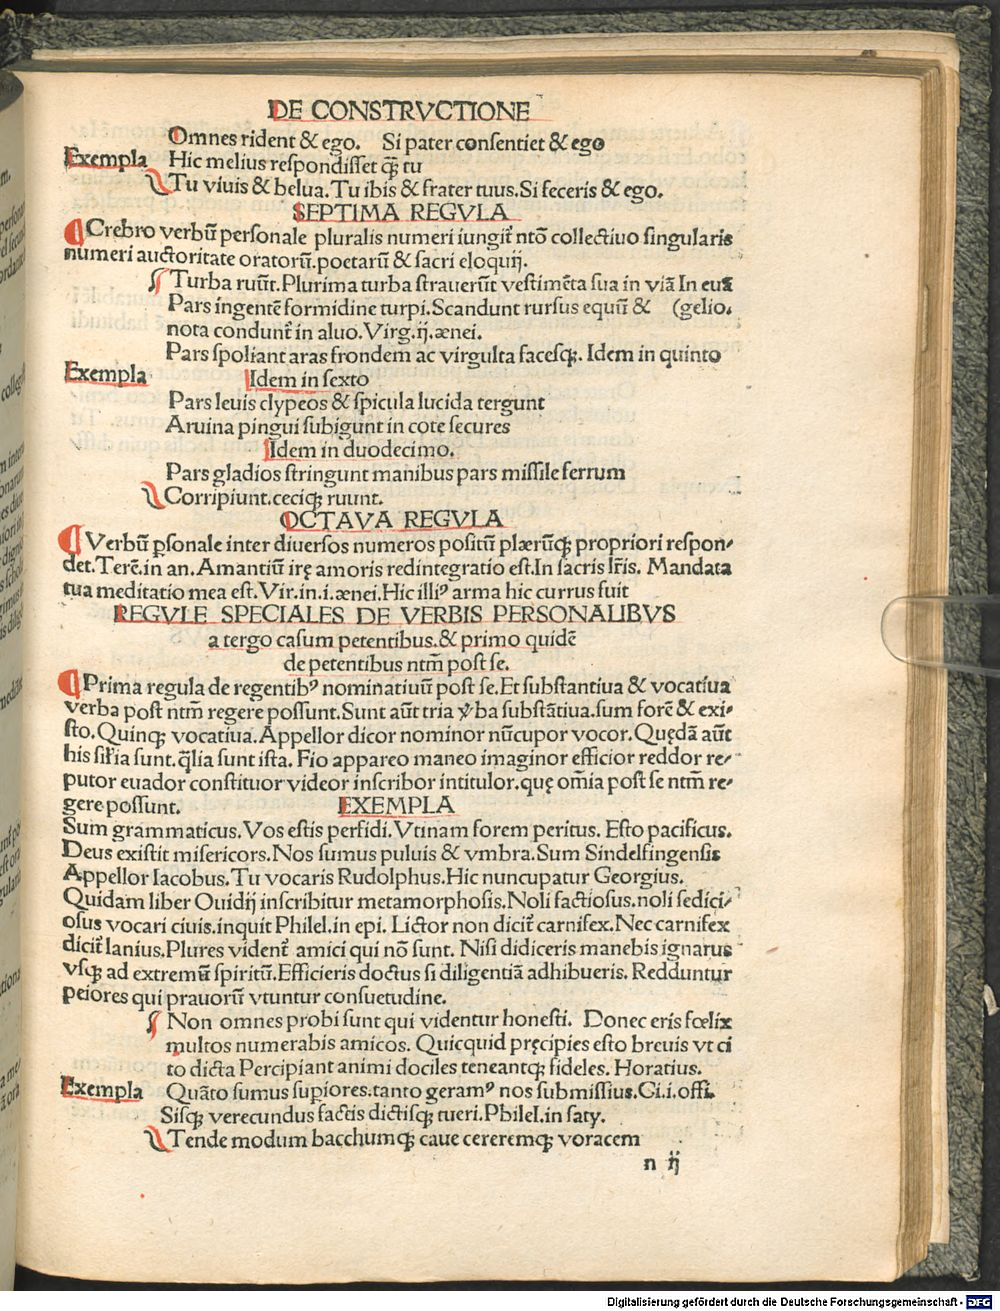 DE CONSTRVCTIONE
Omnes rident & ego. Si pater consentiet & ego
Exempla Hic melius respondisset q̃ tu
Tu viuis & belua. Tu ibis & frater tuus. Si feceris & ego.
SEPTIMA REGVLA
Crebro verbũ personale pluralis numeri iungit̃ ntõ collectiuo singularis
numeri auctoritate oratorũ. poetarũ & sacri eloquij.
Turba ruũt. Plurima turba strauerũt vestimẽta sua in viã In euã
Pars ingente formidine turpi. Scandunt rursus equũ & (gelio.
nota condunt̃ in aluo. Virg. ij. ænei.
Pars spoliant aras frondem ac virgulta facesq;. Idem in quinto
Exempla Idem in sexto
Pars leuis clypeos & spicula lucida tergunt
Aruina pingui subigunt in cote secures
Idem in duodecimo.
Pars gladios stringunt manibus pars missile ferrum
Corripiunt. ceciq; ruunt.
OCTAVA REGVLA
Verbũ p̱sonale inter diuersos numeros positũ plærũq; propriori respon-
det. Terẽ. in an. Amantiũ irę amoris redintegratio est. In sacris lr̃is. Mandata
tua meditatio mea est. Vir. in. i. ænei. Hic illiꝰ arma hic currus fuit
REGVLE SPECIALES DE VERBIS PERSONALIBVS
a tergo casum petentibus. & primo quidẽ
de petentibus ntm̃ post se.
Prima regula de regentibꝰ nominatiuũ post se. Et substantiua & vocatiua
verba post ntm̃ regere possunt. Sunt aũt tria v̓ba substãtiua. sum forẽ & exi-
sto. Quinq; vocatiua. Appellor dicor nominor nũcupor vocor. Quędã aũt
his sil̃ia sunt. q̃lia sunt ista. Fio appareo maneo imaginor efficior reddor re-
putor euador constituor videor inscribor intitulor. quę om̃ia post se ntm̃ re-
gere possunt. EXEMPLA
Sum grammaticus. Vos estis perfidi. Vtinam forem peritus. Esto pacificus.
Deus existit misericors. Nos sumus puluis & vmbra. Sum Sindelfingensis
Appellor Iacobus. Tu vocaris Rudolphus. Hic nuncupatur Georgius.
Quidam liber Ouidij inscribitur metamorphosis. Noli factiosus. noli sedici-
osus vocari ciuis. inquit Philel. in epi. Lictor non dicit̃ carnifex. Nec carnifex
dicit̃ lanius. Plures vident̃ amici qui nõ sunt. Nisi didiceris manebis ignarus
vsq; ad extremũ spiritũ. Efficieris doctus si diligentiã adhibueris. Redduntur
peiores qui prauorũ vtuntur consuetudine.
Non omnes probi sunt qui videntur honesti. Donec eris fœlix
multos numerabis amicos. Quicquid pręcipies esto breuis vt ci
to dicta Percipiant animi dociles teneantq; fideles. Horatius.
Exempla Quãto sumus sup̱iores. tanto geramꝰ nos submissius. Ci. i. offi.
Sisq; verecundus factis dictisq; tueri. Philel. in saty.
Tende modum bacchumq; caue cereremq; voracem
n ij
Digitalisierung gefördert durch die Deutsche Forschungsgemeinschaft - DFG